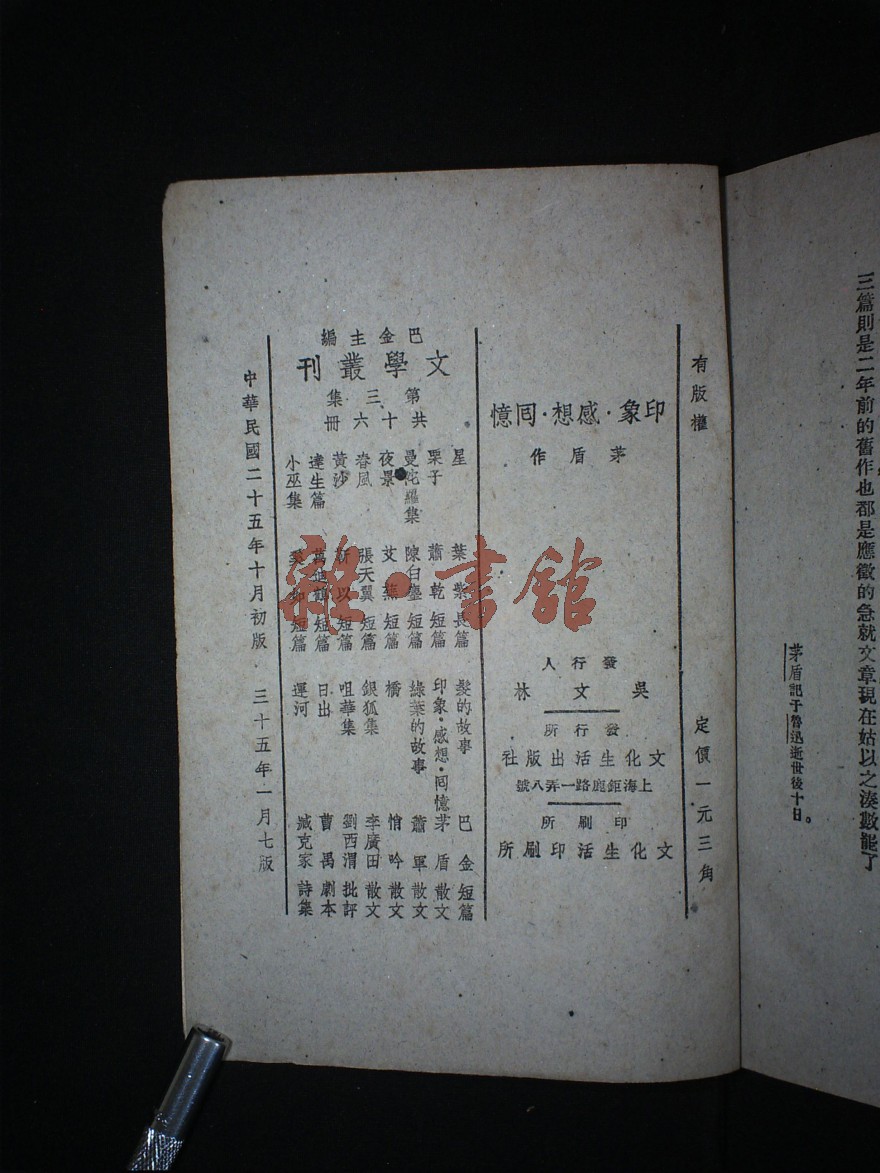 三篇則是二年前的舊作也都是應徵的急就文章現在姑以之湊數罷了
茅盾記于魯迅逝世後十日。
有版權
定價一元三角
印象·感想·囘憶
茅盾作
發行人
吳文林
發行所
文化生活出版社
上海鉅鹿路一弄八號
印刷所
文化生活印刷所
巴金主編
文學叢刊
第三集
共十六冊
星 葉紫 長篇
栗子 蕭乾 短篇
曼陀羅集 陳白塵 短篇
夜景 艾蕪 短篇
春風 張天翼 短篇
黃沙 靳以 短篇
達生篇 萬迪鶴 短篇
小巫集 奚如 短篇
髮的故事 巴金 短篇
印象·感想·囘憶 茅盾 散文
綠葉的故事 蕭軍 散文
橋 悄吟 散文
銀狐集 李廣田 散文
咀華集 劉西渭 批評
日出 曹禺 劇本
運河 臧克家 詩集
中華民國二十五年十月初版 三十五年一月七版
雜·書館